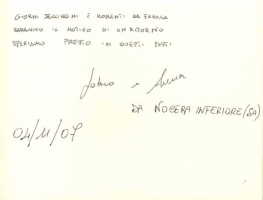 GIORNI BELLISSIMI E MOMENTI DA FAVOLA
SARANNO IL MOTIVO DI UN RITORNO
SPERIAMO PRESTO IN QUESTI POSTI
Fabio e
DA NOCERA INFERIORE (SA)
04/11/07